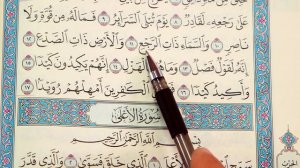 عَلَىٰ رَجْعِهِۦ لَقَادِرٌ ٨ يَوْمَ تُبْلَى ٱلسَّرَآئِرُ ٩ فَمَا لَهُۥ مِن قُوَّةٍ وَلَا
نَاصِرٍ ١٠ وَٱلسَّمَآءِ ذَاتِ ٱلرَّجْعِ ١١ وَٱلْأَرْضِ ذَاتِ ٱلصَّدْعِ ١٢
إِنَّهُۥ لَقَوْلٌ فَصْلٌ ١٣ وَمَا بِٱلْهَزْلِ ١٤ إِنَّهُمْ يَكِيدُونَ كَيْدًا ١٥
وَأَكِيدُ كَيْدًا ١٦ ٱلْكَٰفِرِينَ أَمْهِلْهُمْ رُوَيْدًۢا ١٧
سُورَةُ الأَعْلَىٰ
بِسْمِ ٱللَّهِ ٱلرَّحْمَٰنِ ٱلرَّحِيمِ
سَبِّحِ ٱلَّذِى خَلَقَ فَسَوَّىٰ ٢ وَٱلَّذِى قَدَّرَ